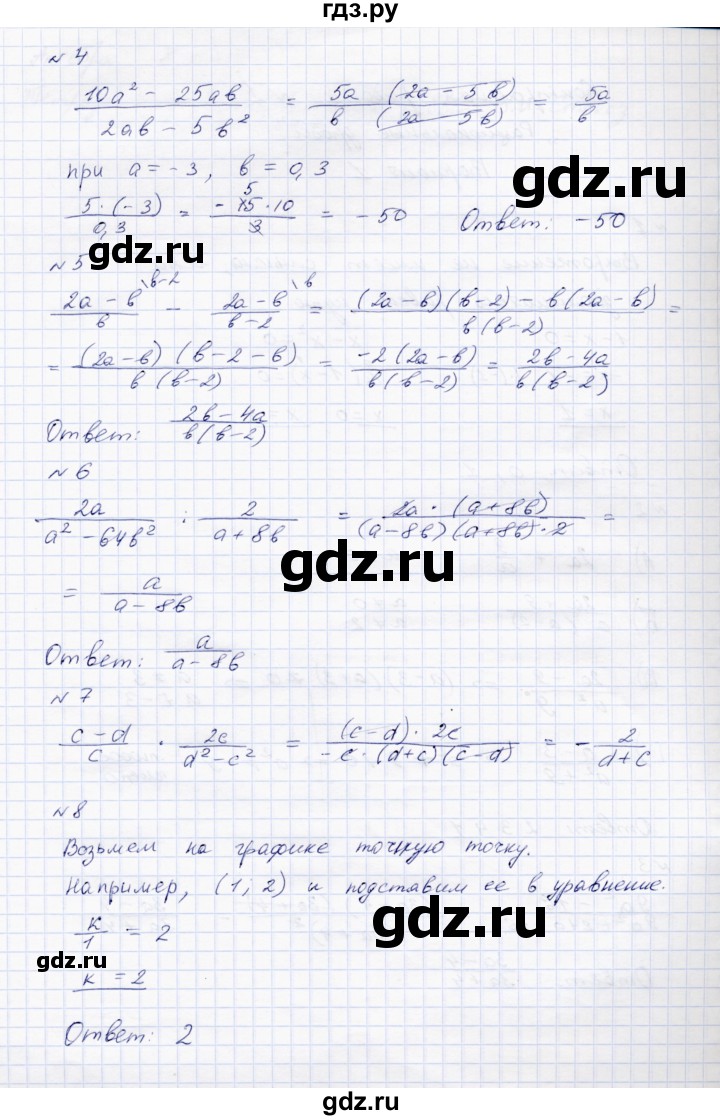 гдз.ру
№ 4
(10a² − 25ab)/(2ab − 5b²) = (5a (2a − 5b))/(b (2a − 5b)) = 5a/b
при a = −3, b = 0,3
(5·(−3))/0,3 = (−15·10)/3 = −50 Ответ: −50
5
№ 5
(2a − b)/b \b−2 − (2a − b)/(b − 2) \b = ((2a − b)(b − 2) − b(2a − b))/(b(b − 2)) =
= ((2a − b)(b − 2 − b))/(b(b − 2)) = (−2(2a − b))/(b(b − 2)) = (2b − 4a)/(b(b − 2))
Ответ: (2b − 4a)/(b(b − 2))
№ 6
2a/(a² − 64b²) : 2/(a + 8b) = (2a·(a + 8b))/((a − 8b)(a + 8b)·2) =
= a/(a − 8b)
Ответ: a/(a − 8b)
№ 7
(c − d)/c · 2c/(d² − c²) = ((c − d)·2c)/(−c·(d + c)(c − d)) = −2/(d + c)
№ 8
Возьмем на графике точную точку.
Например, (1; 2) и подставим ее в уравнение.
к/1 = 2
к = 2
Ответ: 2
gdz.ru
gdz.ru
gdz.ru
gdz.ru
gdz.ru
gdz.ru
gdz.ru
gdz.ru